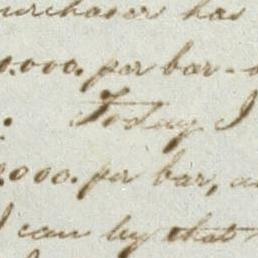 purchaser has
0.000. per bar-
. Today I
2000. per bar, a
I can by that